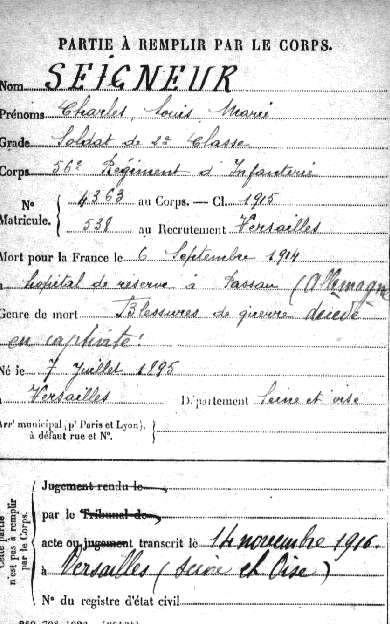 PARTIE À REMPLIR PAR LE CORPS.
Nom SEIGNEUR
Prénoms Charles, Louis, Marie
Grade Soldat de 2e Classe
Corps 56e Régiment d'Infanterie
N° Matricule. 4363 au Corps. — Cl. 1915
538 au Recrutement Versailles
Mort pour la France le 6 Septembre 1914
à hôpital de réserve à Passau (Allemagne
Genre de mort Blessures de guerre décédé
en captivité.
Né le 7 Juillet 1895
à Versailles Département Seine et oise
Arr' municipal (p' Paris et Lyon), à défaut rue et N°.
Cette partie n'est pas à remplir par le Corps.
Jugement rendu le
par le Tribunal de
acte ou jugement transcrit le 14 novembre 1916.
à Versailles (Seine et Oise)
N° du registre d'état civil